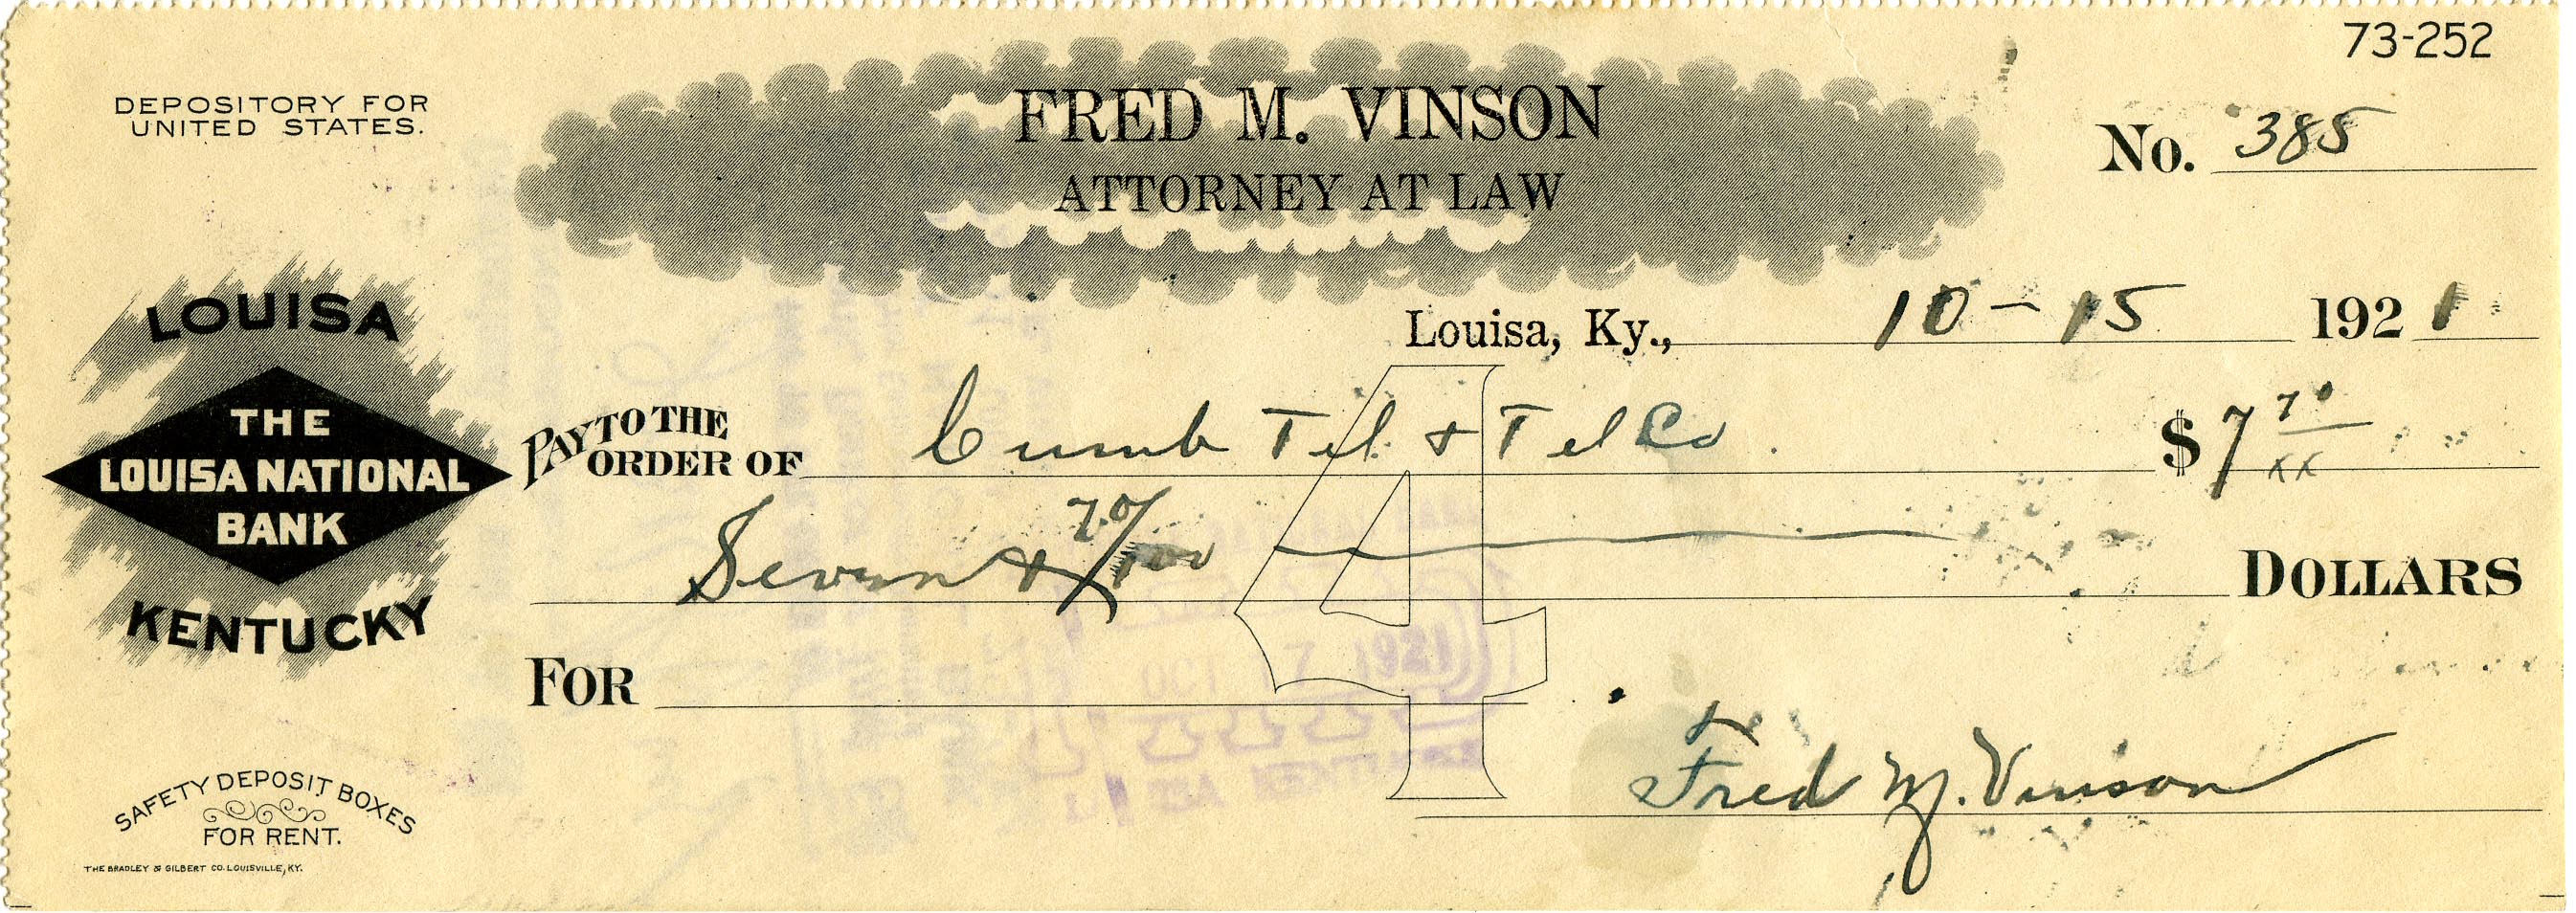 73-252
DEPOSITORY FOR
UNITED STATES.
FRED M. VINSON
ATTORNEY AT LAW
No. 385
LOUISA
THE
LOUISA NATIONAL
BANK
KENTUCKY
Louisa, Ky., 10-15 1921
PAY TO THE
ORDER OF Cumb Tel & Tel Co. $7 70/xx
Seven & 70/100 DOLLARS
4
FOR
OCT 7 1921
Fred M. Vinson
SAFETY DEPOSIT BOXES
FOR RENT.
THE BRADLEY & GILBERT CO. LOUISVILLE, KY.